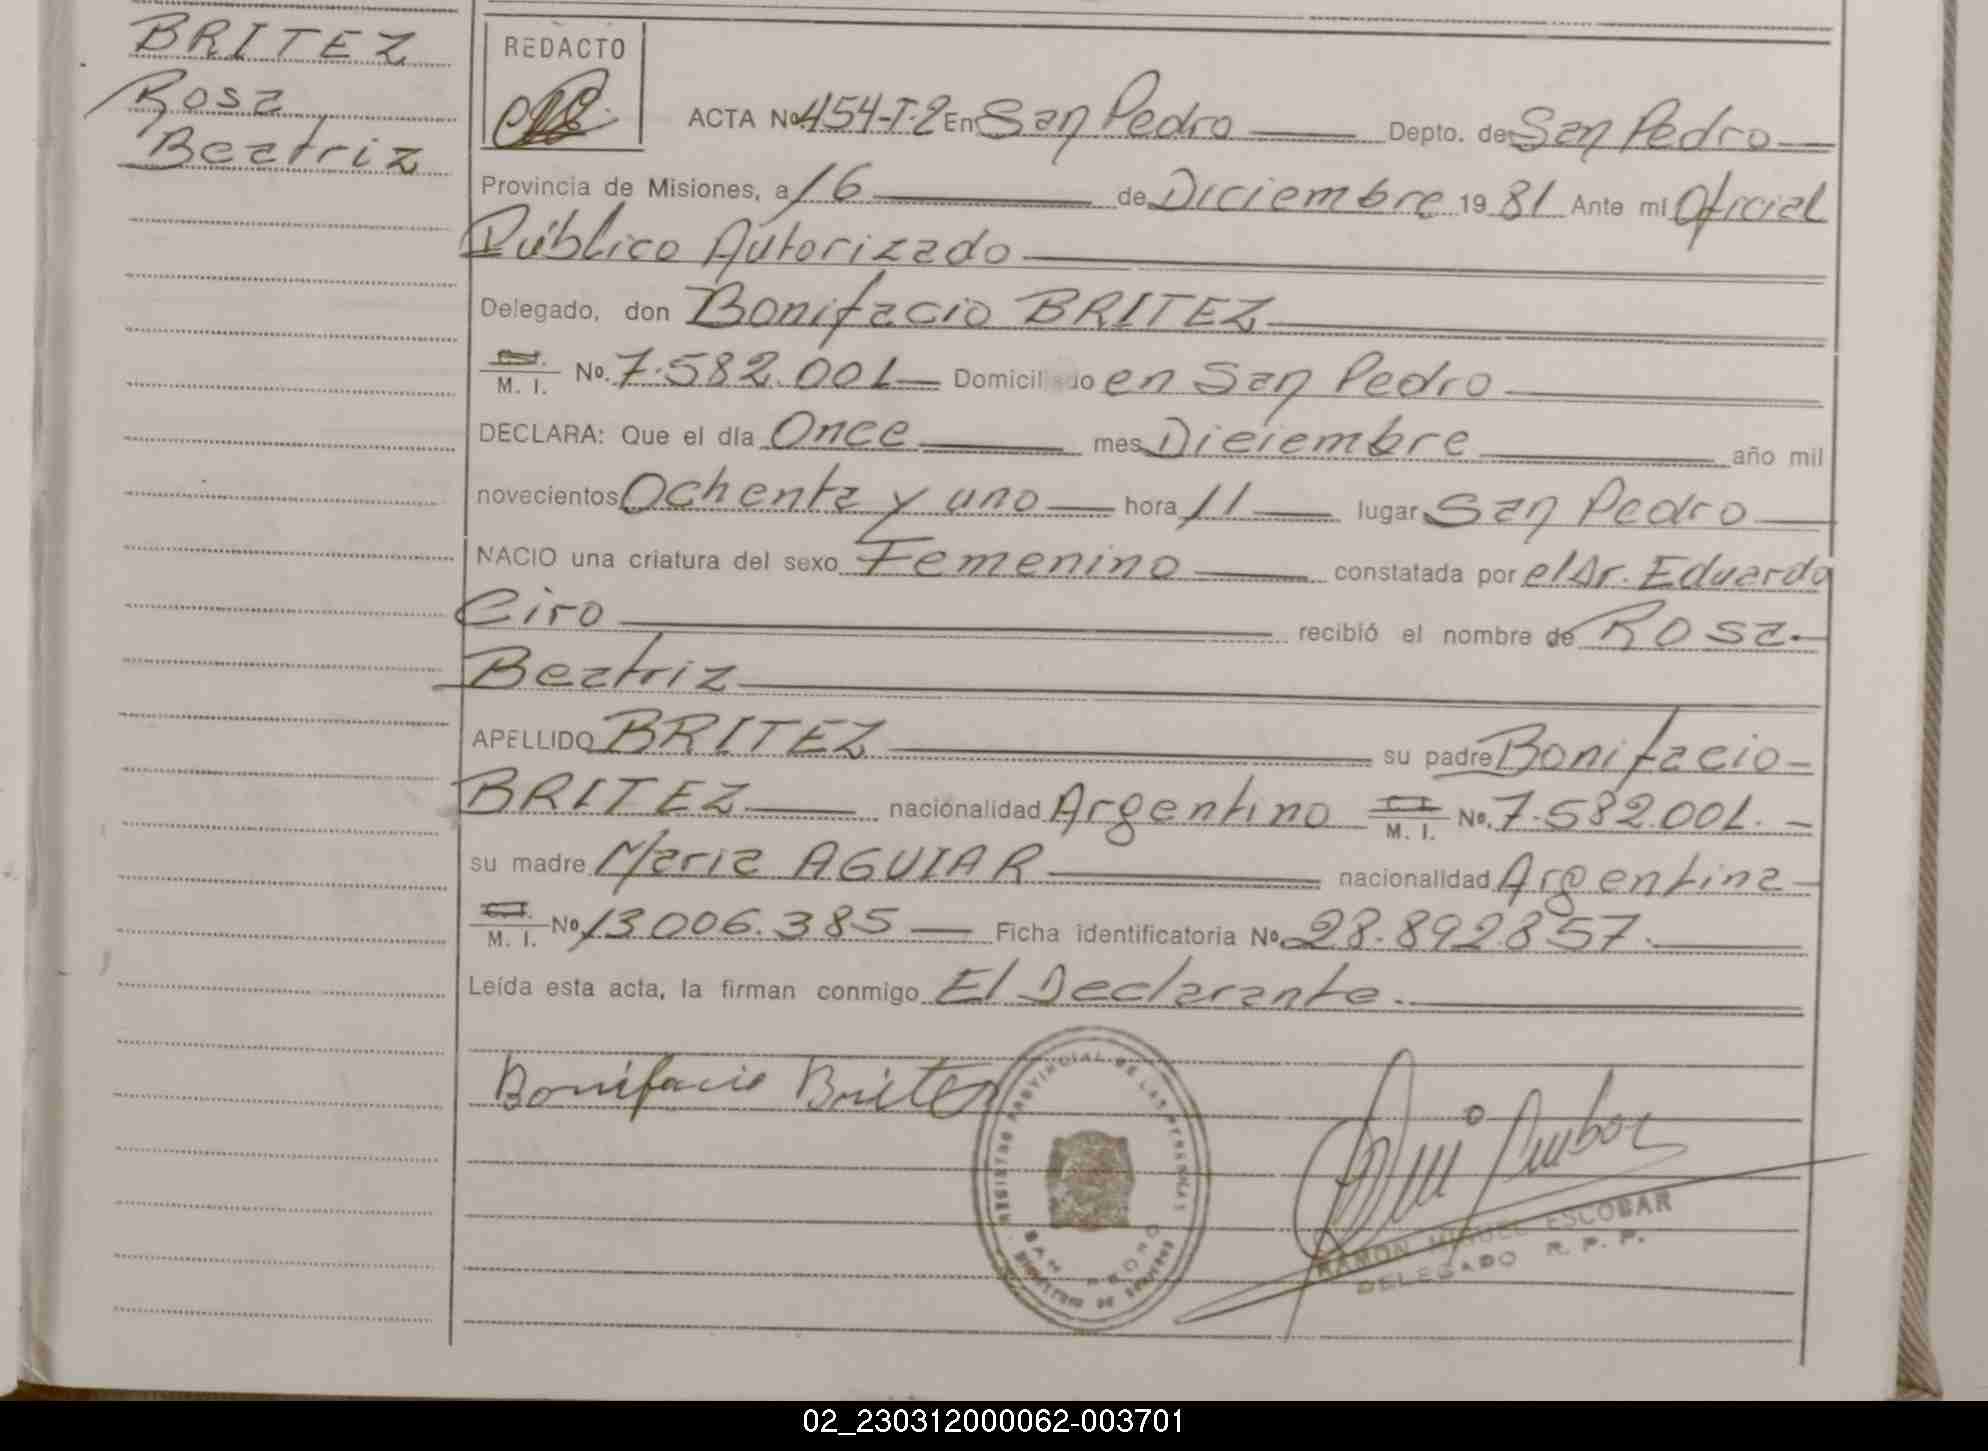 BRITEZ
Rosa
Beatriz
REDACTO
ACTA Nº 454-T-2 En San Pedro Depto. de San Pedro
Provincia de Misiones, a 16 de Diciembre 19 81 Ante mi Oficial
Público Autorizado
Delegado, don Bonifacio BRITEZ
M. I. Nº. 7.582.001 Domiciliado en San Pedro
DECLARA: Que el día Once mes Diciembre año mil
novecientos Ochenta y uno hora 11 lugar San Pedro
NACIO una criatura del sexo Femenino constatada por el Dr. Eduardo
Ciro recibió el nombre de Rosa
Beatriz
APELLIDO BRITEZ su padre Bonifacio
BRITEZ nacionalidad Argentino M. I. Nº. 7.582.001.
su madre Maria AGUIAR nacionalidad Argentina
M. I. Nº 13006.385 Ficha identificatoria Nº. 28.892.857.
Leída esta acta, la firman conmigo El Declarante.
Bonifacio Britez
REGISTRO PROVINCIAL DE LAS PERSONAS
SAN PEDRO
RAMON MIGUEL ESCOBAR
DELEGADO R. P. P.
02_230312000062-003701